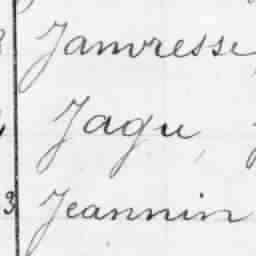 Janvresse,
Jagu,
3 Jeannin